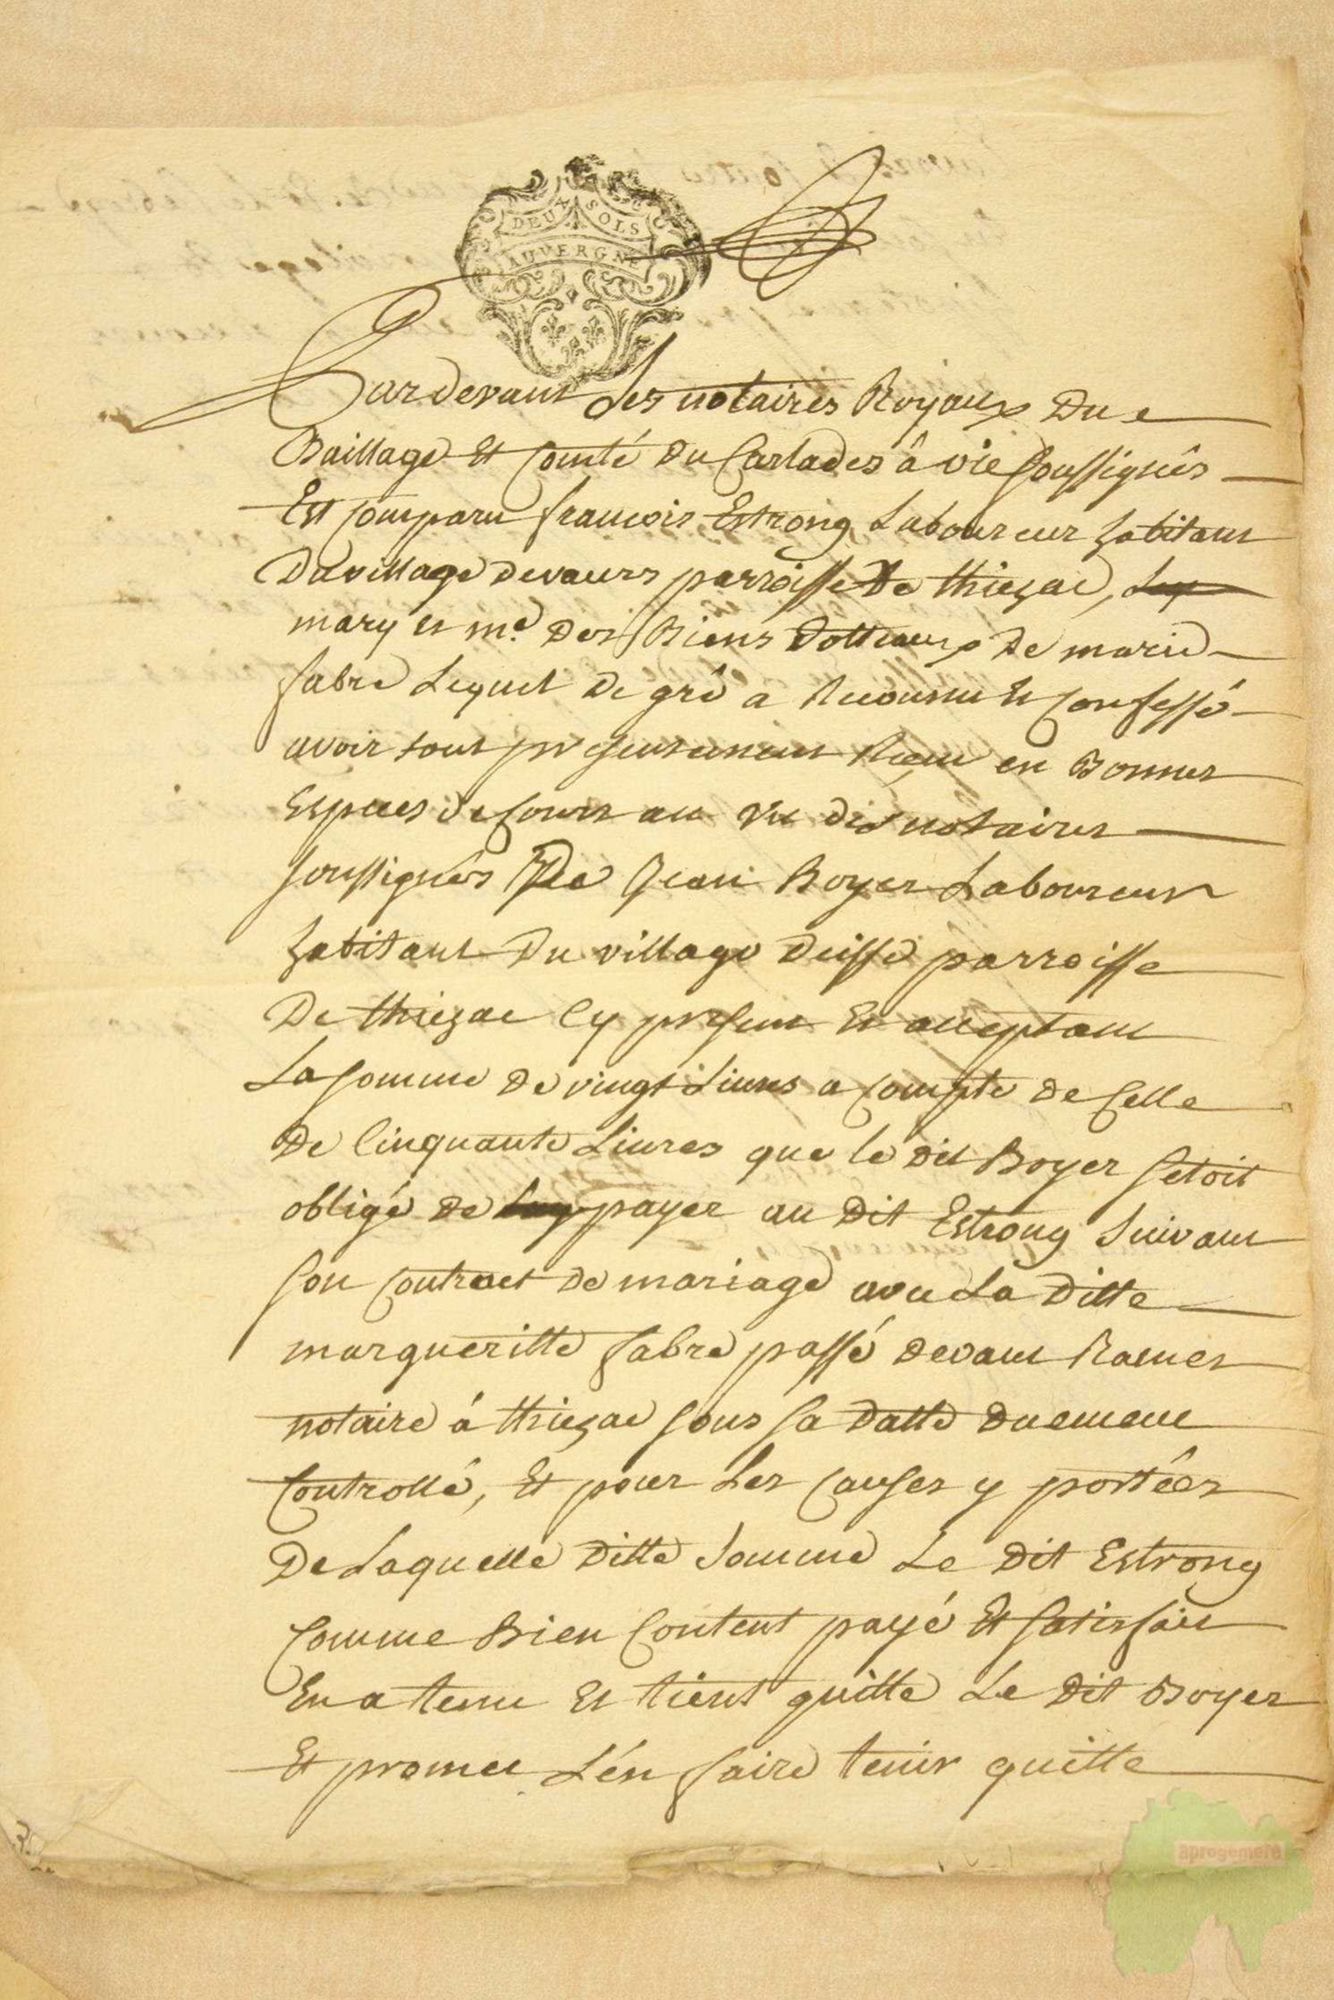 DEUX SOLS
AUVERGNE
Pardevant Les notaires Royaux Du
Baillage Et Comté Du Carlades à vic soussignés
Est Comparu francois Estrong Laboureur habitant
Du village devaurs parroisse De thiezac,
mary et me. Des Biens Dotteaux De marie
fabre Lequel De gré a Reconnu Et Confessé
avoir tout presentement Receu en Bonnes
Especes de Cours au vu des notaires
soussignés De Jean Boyer Laboureur
habitant Du village deisse parroisse
De thiezac Cy present Et acceptant
La somme De vingt Livres a compte de Celle
De Cinquante Livres que le Dit Boyer setoit
obligé De payer au Dit Estrong suivant
son Contract De mariage avec La Ditte
margueritte fabre passé Devant Rames
notaire à thiezac sous sa Datte Duement
Controllé, Et pour Les Causes y portées
De Laquelle Ditte somme Le Dit Estrong
Comme Bien Content payé Et satisfait
En a tenu Et tient quitte Le Dit Boyer
Et promet L'en faire tenir quitte
aprogemere